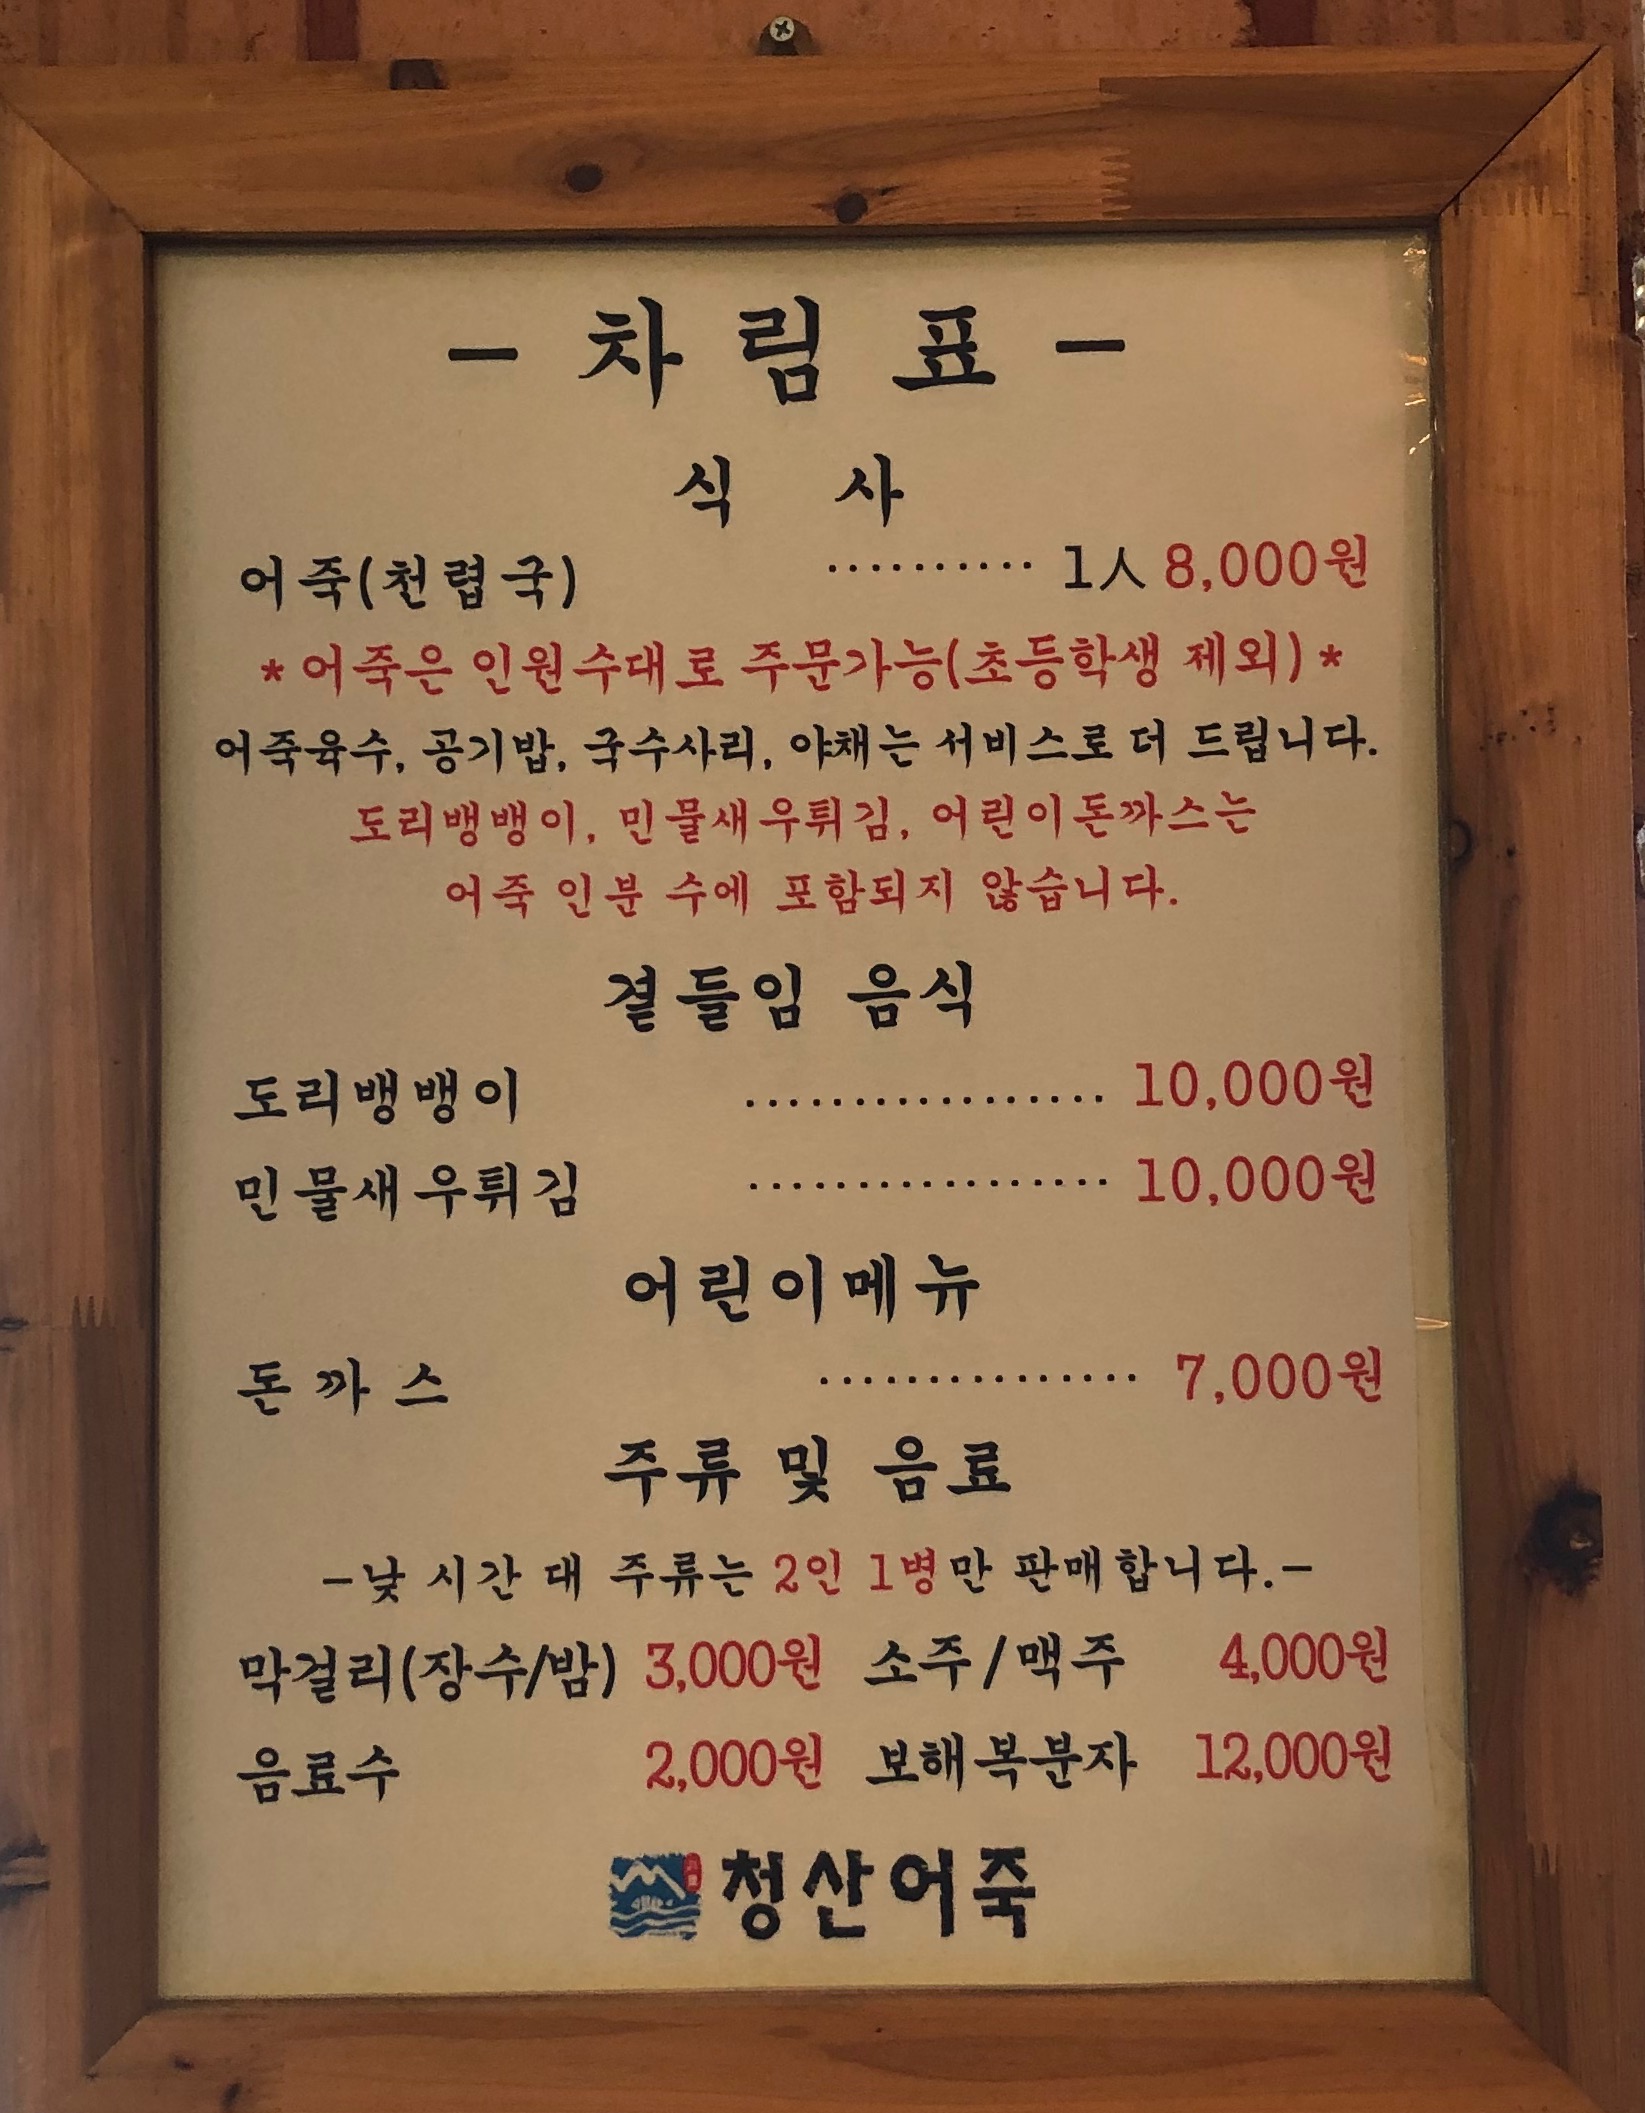 - 차림표 -
식 사
어죽(천렵국) ·········· 1人 8,000원
* 어죽은 인원수대로 주문가능(초등학생 제외) *
어죽육수, 공기밥, 국수사리, 야채는 서비스로 더 드립니다.
도리뱅뱅이, 민물새우튀김, 어린이돈까스는
어죽 인분 수에 포함되지 않습니다.
곁들임 음식
도리뱅뱅이 ················· 10,000원
민물새우튀김 ················· 10,000원
어린이메뉴
돈까스 ··············· 7,000원
주류 및 음료
-낮 시간 대 주류는 2인 1병만 판매합니다.-
막걸리(장수/밤) 3,000원 소주/맥주 4,000원
음료수 2,000원 보해복분자 12,000원
청산어죽